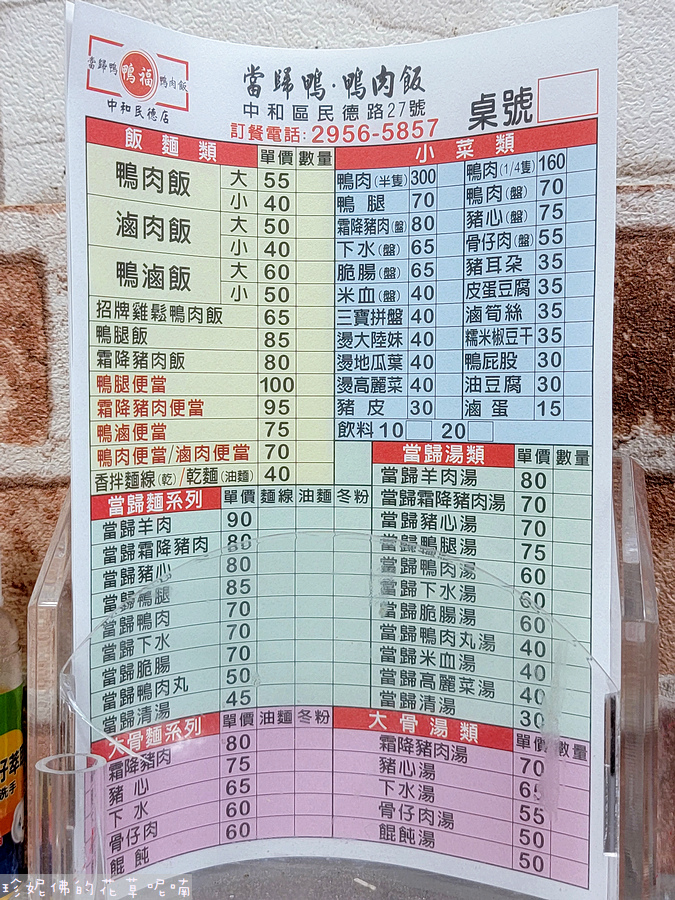 當歸鴨 鴨福 鴨肉飯
中和民德店
當歸鴨·鴨肉飯
中和區民德路27號
訂餐電話:2956-5857
桌號
飯麵類 單價 數量
鴨肉飯 大 55
小 40
滷肉飯 大 50
小 40
鴨滷飯 大 60
小 50
招牌雞鬆鴨肉飯 65
鴨腿飯 85
霜降豬肉飯 80
鴨腿便當 100
霜降豬肉便當 95
鴨滷便當 75
鴨肉便當/滷肉便當 70
香拌麵線(乾)/乾麵(油麵) 40
小菜類
鴨肉(半隻) 300 鴨肉(1/4隻) 160
鴨腿 70 鴨肉(盤) 70
霜降豬肉(盤) 80 豬心(盤) 75
下水(盤) 65 骨仔肉(盤) 55
脆腸(盤) 65 豬耳朵 35
米血(盤) 40 皮蛋豆腐 35
三寶拼盤 40 滷筍絲 35
燙大陸妹 40 糯米椒豆干 35
燙地瓜葉 40 鴨屁股 30
燙高麗菜 40 油豆腐 30
豬皮 30 滷蛋 15
飲料 10 20
當歸麵系列 單價 麵線 油麵 冬粉
當歸羊肉 90
當歸霜降豬肉 80
當歸豬心 80
當歸鴨腿 85
當歸鴨肉 70
當歸下水 70
當歸脆腸 70
當歸鴨肉丸 50
當歸清湯 45
當歸湯類 單價 數量
當歸羊肉湯 80
當歸霜降豬肉湯 70
當歸豬心湯 70
當歸鴨腿湯 75
當歸鴨肉湯 60
當歸下水湯 60
當歸脆腸湯 60
當歸鴨肉丸湯 40
當歸米血湯 40
當歸高麗菜湯 40
當歸清湯 30
大骨麵系列 單價 油麵 冬粉
霜降豬肉 80
豬心 75
下水 65
骨仔肉 60
餛飩 60
大骨湯類 單價 數量
霜降豬肉湯 70
豬心湯 65
下水湯 55
骨仔肉湯 50
餛飩湯 50
珍妮佛的花草呢喃